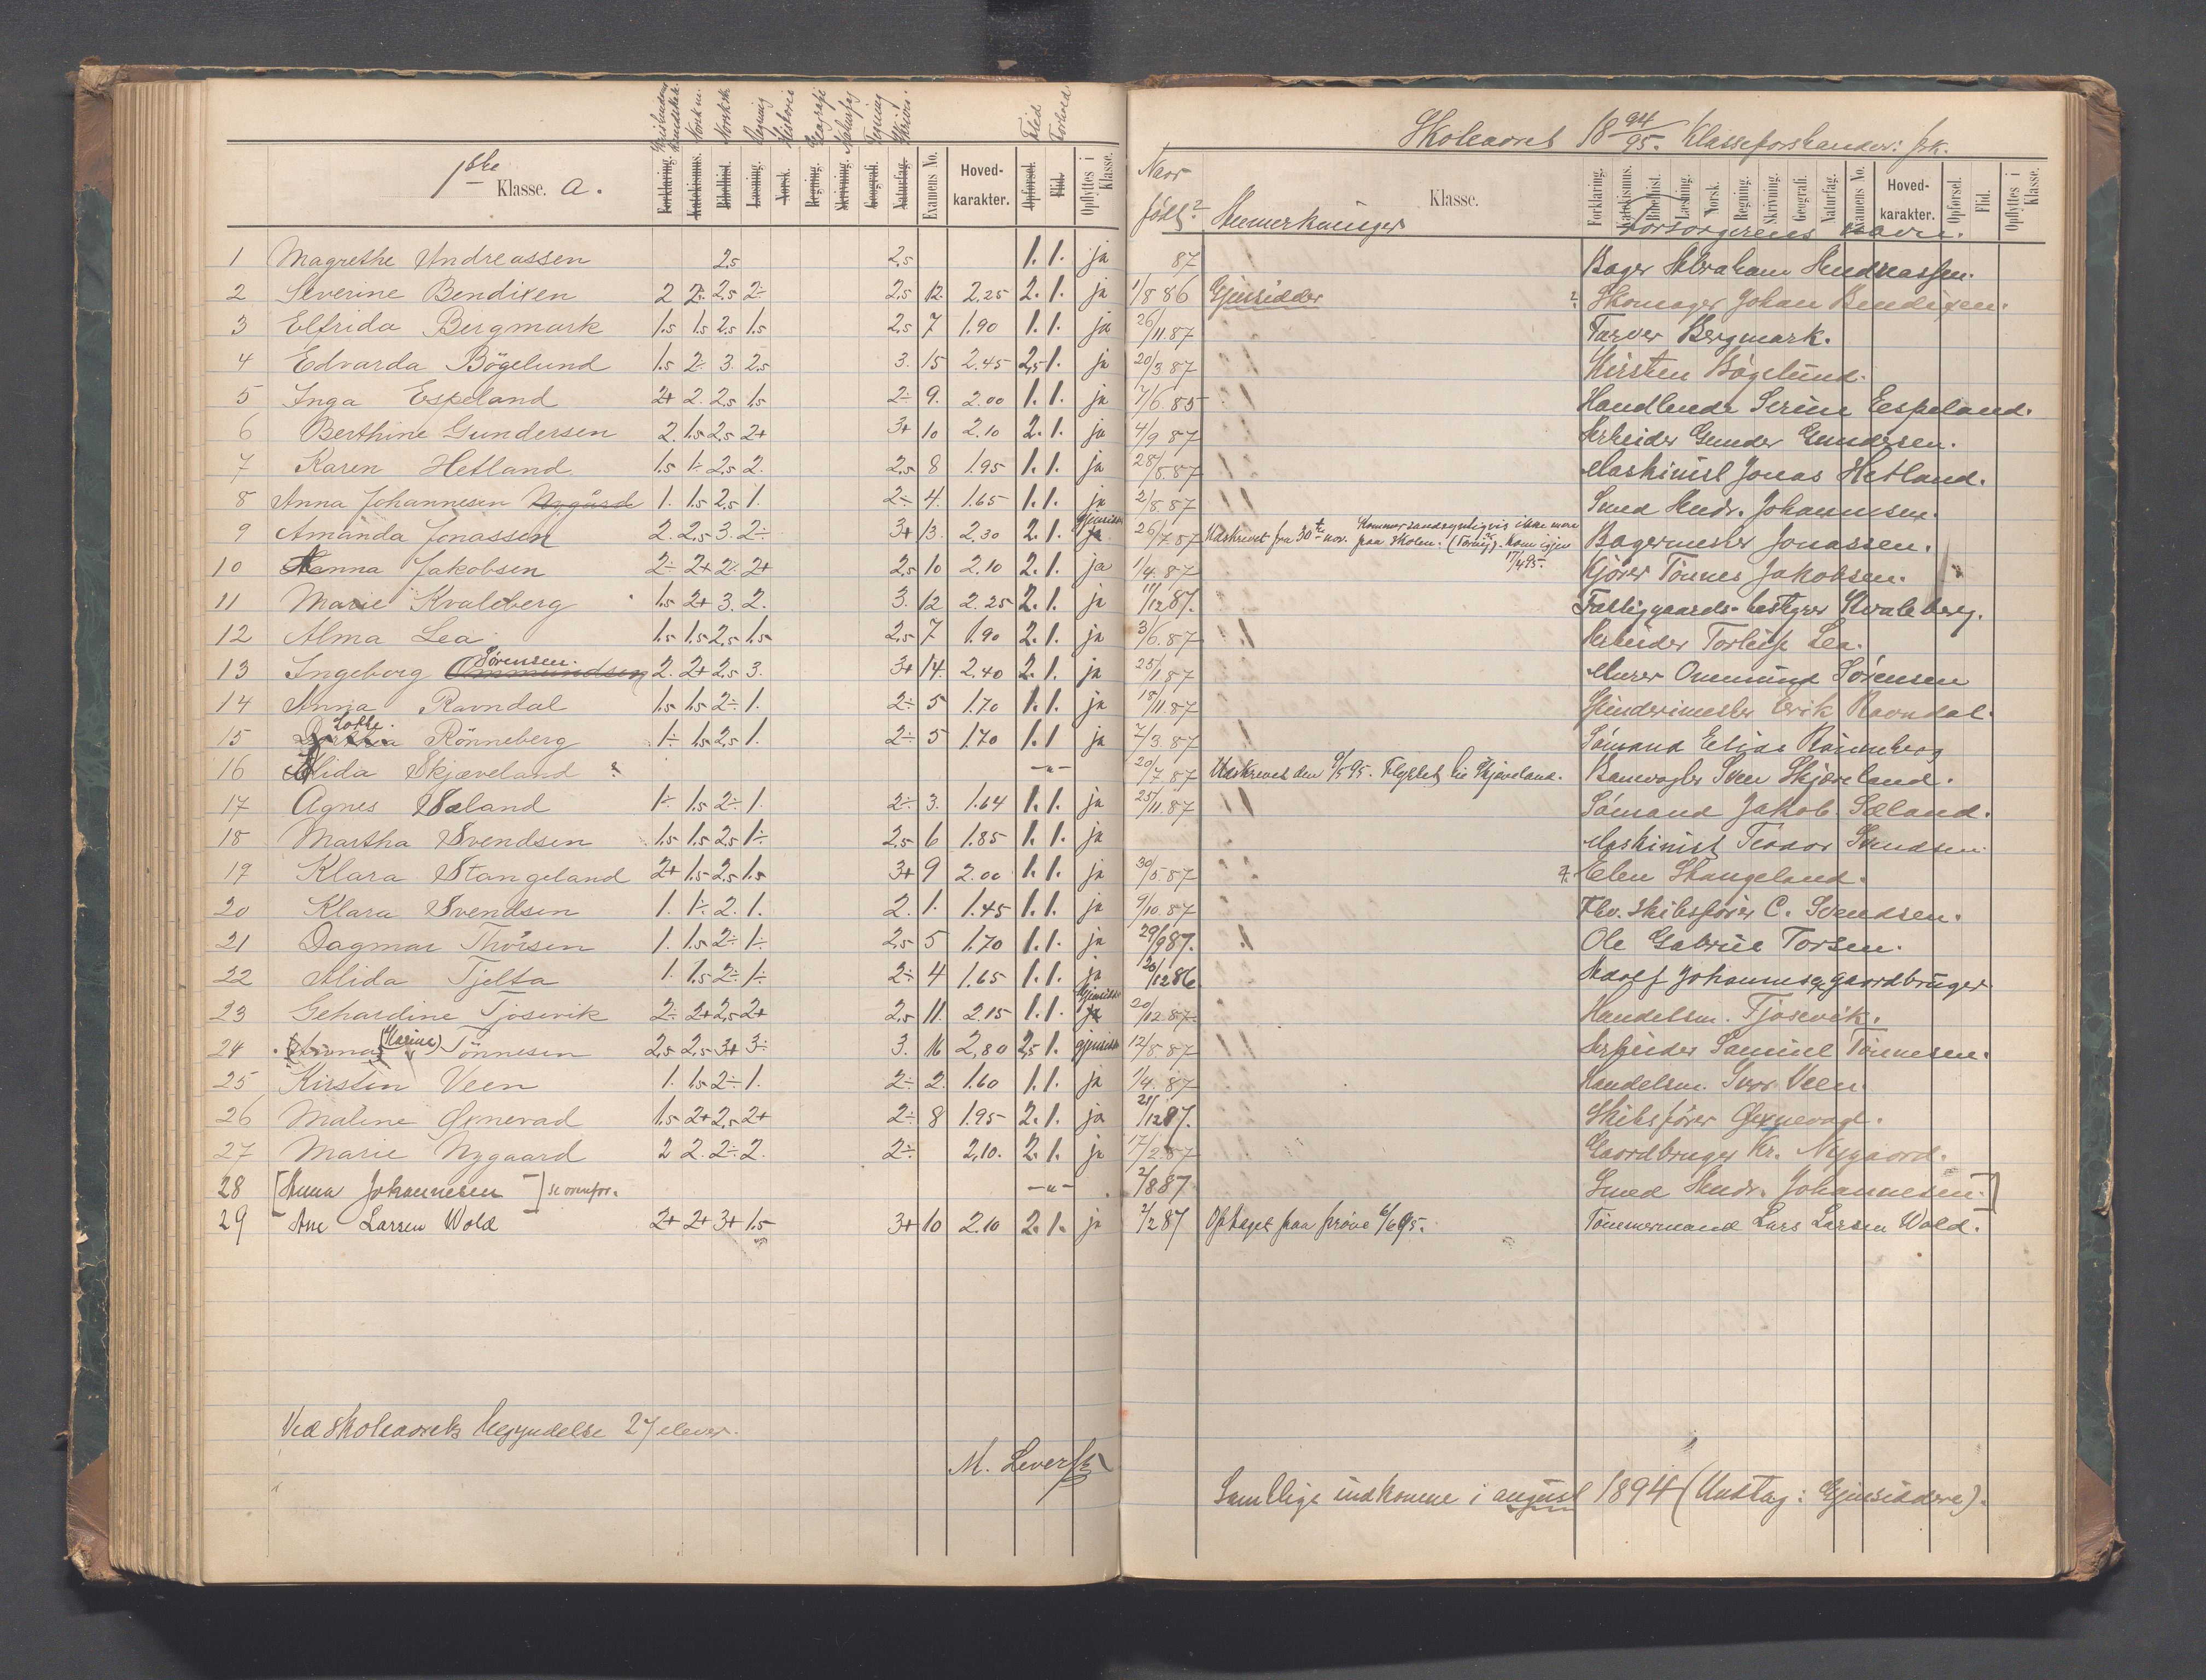 1ste Klasse. a.
Forklaring. Katekismus. Bibelhist. Læsning. Norsk. Regning. Skrivning. Geografi. Naturfag. Examens No. Hoved-karakter. Opførsel. Flid. Opflyttes i Klasse.
Norsk m. Norsk sk. Regning Historie Geografi Naturfag Tegning Skriv. Flid Forhold
1 Magrethe Andreassen 2,5 2,5 1. 1. ja
2 Severine Bendixen 2 2÷ 2,5 2÷ 2,5 12. 2.25 2. 1. ja
3 Elfrida Bergmark 1,5 1,5 2,5 1,5 2,5 7 1.90 1. 1. ja
4 Edvarda Bögelund 1,5 2÷ 3. 2,5 3. 15 2.45 2,5 1. ja
5 Inga Espeland 2+ 2. 2,5 1,5 2÷ 9. 2.00 1. 1. ja
6 Berthine Gundersen 2. 1,5 2,5 2+ 3+ 10 2.10 2. 1. ja
7 Karen Hetland 1,5 1÷ 2,5 2. 2,5 8 1.95 1. 1. ja
8 Anna Johannesen Nygård 1. 1,5 2,5 1. 2÷ 4. 1.65 1. 1. ja
9 Amanda Jonassen 2. 2,5 3. 2÷ 3+ 13. 2.30 2. 1. gjensidder ja
10 Hanna Jakobsen 2÷ 2+ 2÷ 2+ 2,5 10 2.10 2. 1. ja
11 Marie Kvaleberg 1,5 2+ 3. 2. 3. 12 2.25 2. 1. ja
12 Alma Lea 1,5 1,5 2,5 1,5 2,5 7 1.90 2. 1. ja
13 Ingeborg Ommundsen Sørensen. 2. 2+ 2,5 3. 3+ 14. 2.40 2. 1. ja
14 Anna Ravndal 1,5 1,5 2÷ 1. 2÷ 5 1.70 1. 1. ja
15 Lotte. Rönneberg 1÷ 1,5 2,5 1. 2÷ 5 1.70 1. 1 ja
16 Alida Skjæveland ? –"–
17 Agnes Sæland 1÷ 1,5 2÷ 1. 2÷ 3. 1.64 1. 1. ja
18 Martha Svendsen 1,5 1,5 2,5 1÷ 2,5 6 1.85 1. 1. ja
19 Klara Stangeland 2+ 1,5 2,5 1,5 3+ 9 2.00 1. 1. ja
20 Klara Svendsen 1. 1÷ 2. 1. 2. 1. 1.45 1. 1. ja
21 Dagmar Thörsen 1. 1,5 2÷ 1÷ 2,5 5 1.70 1. 1. ja
22 Alida Tjelta 1. 1,5 2÷ 1÷ 2÷ 4 1.65 1. 1. ja
23 Gehardine Tjösevik 2÷ 2+ 2,5 2+ 2,5 11. 2.15 1. 1. gjensidder ja
24 (Anna) (Karine) Tönnesen 2,5 2,5 3+ 3÷ 3. 16 2,80 2,5 1. gjensidder
25 Kirstin Veen 1. 1,5 2÷ 1. 2÷ 2. 1.60 1. 1. ja
26 Maline Øxnevad 1,5 2+ 2,5 2+ 2÷ 8 1.95 2. 1. ja
27 Marie Nygaard 2 2. 2÷ 2. 2÷ 2,10. 2. 1. ja
28 [Anna Johannesen –] se ovenfor. –"–
29 Ane Larsen Wold 2+ 2+ 3+ 1.5 3+ 10 2.10 2. 1. ja
Ved skoleaarets begyndelse 27 elever.
M. Lever
Skoleaaret 1894/95. Klasseforstander: frk.
Naar født? Anmerkninger Klasse. Forsørgerens navn.
Forklaring. Katekismus. Bibelhist. Læsning. Norsk. Regning. Skrivning. Geografi. Naturfag. Examens No. Hoved-karakter. Opførsel. Flid. Opflyttes i Klasse.
87 Bager Abraham Andreassen.
1/8 86 Gjensidder ? Skomager Johan Bendixen.
26/11.87 Farver Bergmark.
20/3 87 Kirsten Bögelund.
7/6.85 Handlende Serine Eespeland.
4/9 87 Arbeider Gunder Gundersen.
28/5.87 Maskinist Jonas Hetland.
2/8 87 Smed Andr. Johannesen.
26/7.87 Udskrevet fra 30te nov. Kommer sandsynligvis ikke mere paa skolen. Kom igjen 17/4 95. Bagermester Jonassen.
1/4.87 Kjører Tönnes Jakobsen.
11/12 87. Fattiggaards-bestyrer Kvaleberg.
3/6.87 Arbeider Torleif Lea.
25/1 87 Murer Ommund Sörensen
18/11.87 Spinderimester Erik Ravndal.
7/3.87 Sömand Elias Rönneberg
20/7 87 Udskrevet den 9/5 95. Flyttet til Skjæveland. Banevogter Sven Skjæveland.
25/11.87 Sömand Jakob Sæland.
Maskinist Teodor Svendsen.
30/5.87 ?. Elen Stangeland.
9/10.87 Fhv. skibsfører C. Svendsen.
29/9 87. Ole Gabriel Torsen.
20/12 86 Adolf Johannes gaardbruger
20/12.87. Handelsm. Tjosevik.
12/8 87 Arbeider Samuel Tönnesen.
7/4.87 Handelsm. Veen.
21/12 87. Skibsfører Øxnevad.
17/2.87 Gaardbruger Kr. Nygaard.
2/8 87 Smed Andr. Johannesen.]
2/2 87 Optaget paa prøve 6/6 95. Tömmermand Lars Larsen Wold.
Samtlige indkomne i august 1894 (Undtag: Gjensiddere).